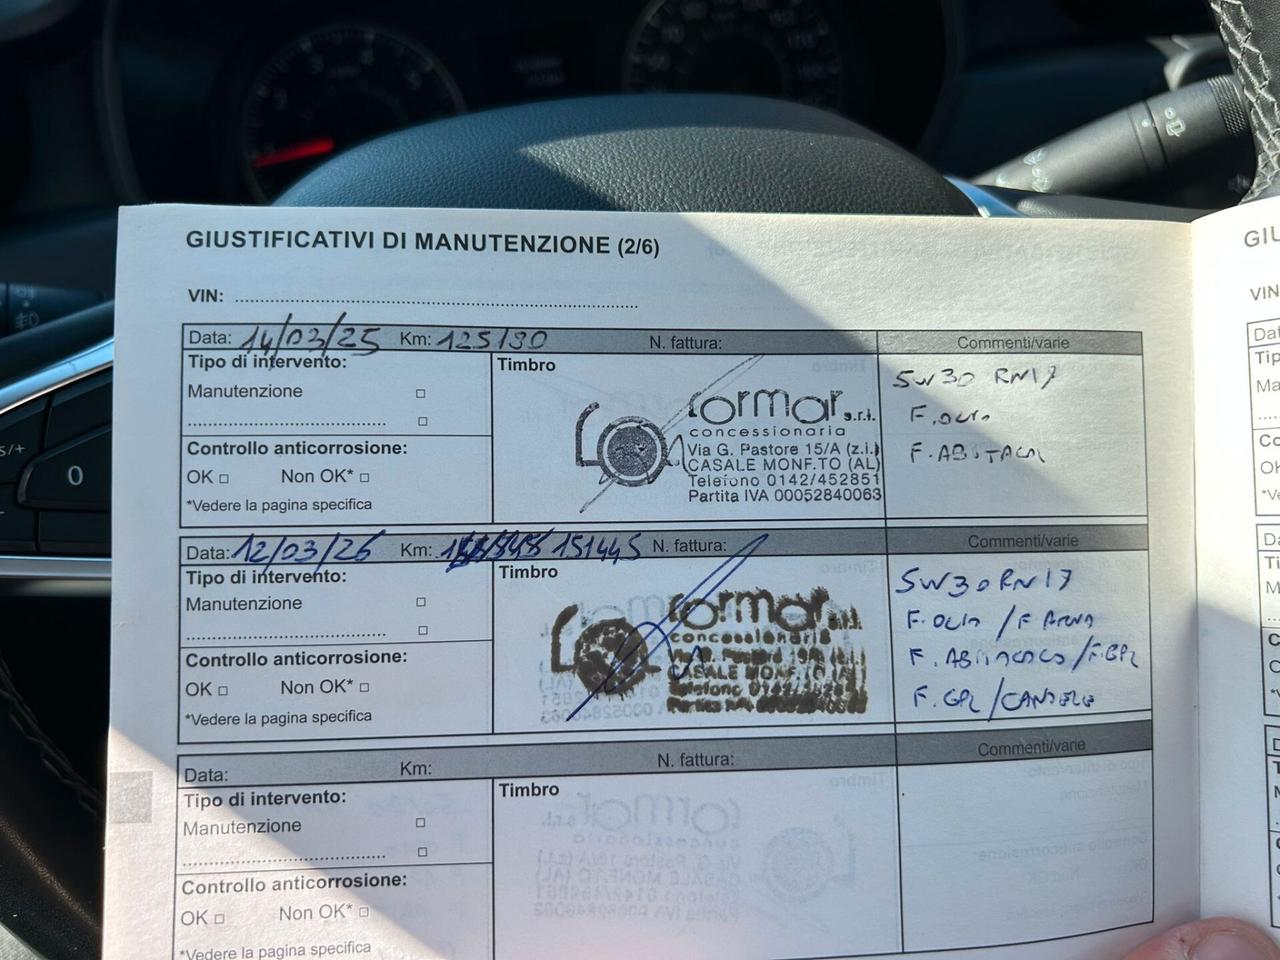 GIUSTIFICATIVI DI MANUTENZIONE (2/6)
VIN:
Data: 14/03/25 Km: 125130 N. fattura: Commenti/varie
Tipo di intervento:
Manutenzione
Timbro
ormar s.r.l.
concessionaria
Via G. Pastore 15/A (z.i.)
CASALE MONF.TO (AL)
Telefono 0142/452851
Partita IVA 00052840063
5W30 RN17
F. OLIO
F. ABITACOLO
Controllo anticorrosione:
OK Non OK*
*Vedere la pagina specifica
Data: 12/03/26 Km: 151445 N. fattura: Commenti/varie
Tipo di intervento:
Manutenzione
Timbro
ormar s.r.l.
concessionaria
CASALE MONF.TO (AL)
Telefono
Partita IVA
5W30 RN17
F. OLIO / F ARIA
F. ABITACOLO / F.GPL
F. GPL / CANDELE
Controllo anticorrosione:
OK Non OK*
*Vedere la pagina specifica
Data: Km: N. fattura: Commenti/varie
Tipo di intervento:
Manutenzione
Timbro
Controllo anticorrosione:
OK Non OK*
*Vedere la pagina specifica
GIU
VIN
0